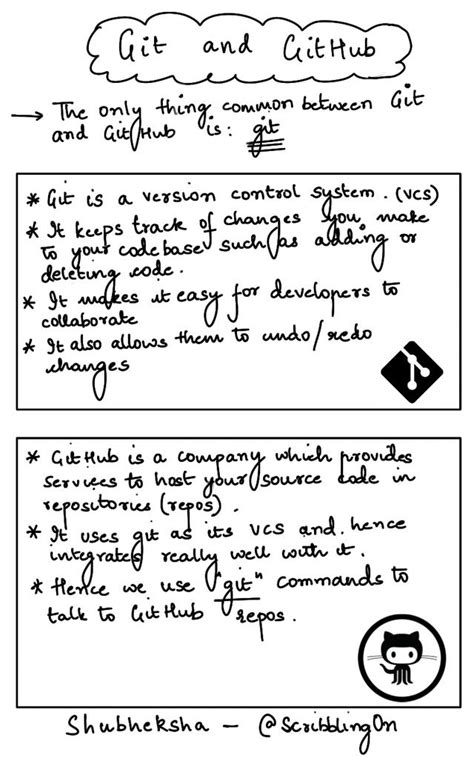 Git and GitHub
→ The only thing common between Git
and GitHub is: git
* Git is a version control system. (VCS)
* It keeps track of changes you make
to your codebase such as adding or
deleting code.
* It makes it easy for developers to
collaborate
* It also allows them to undo/redo
changes
* GitHub is a company which provides
services to host your source code in
repositories (repos).
* It uses git as its VCS and hence
integrates really well with it.
* Hence we use "git" commands to
talk to GitHub repos.
Shubheksha - @ScribblingOn